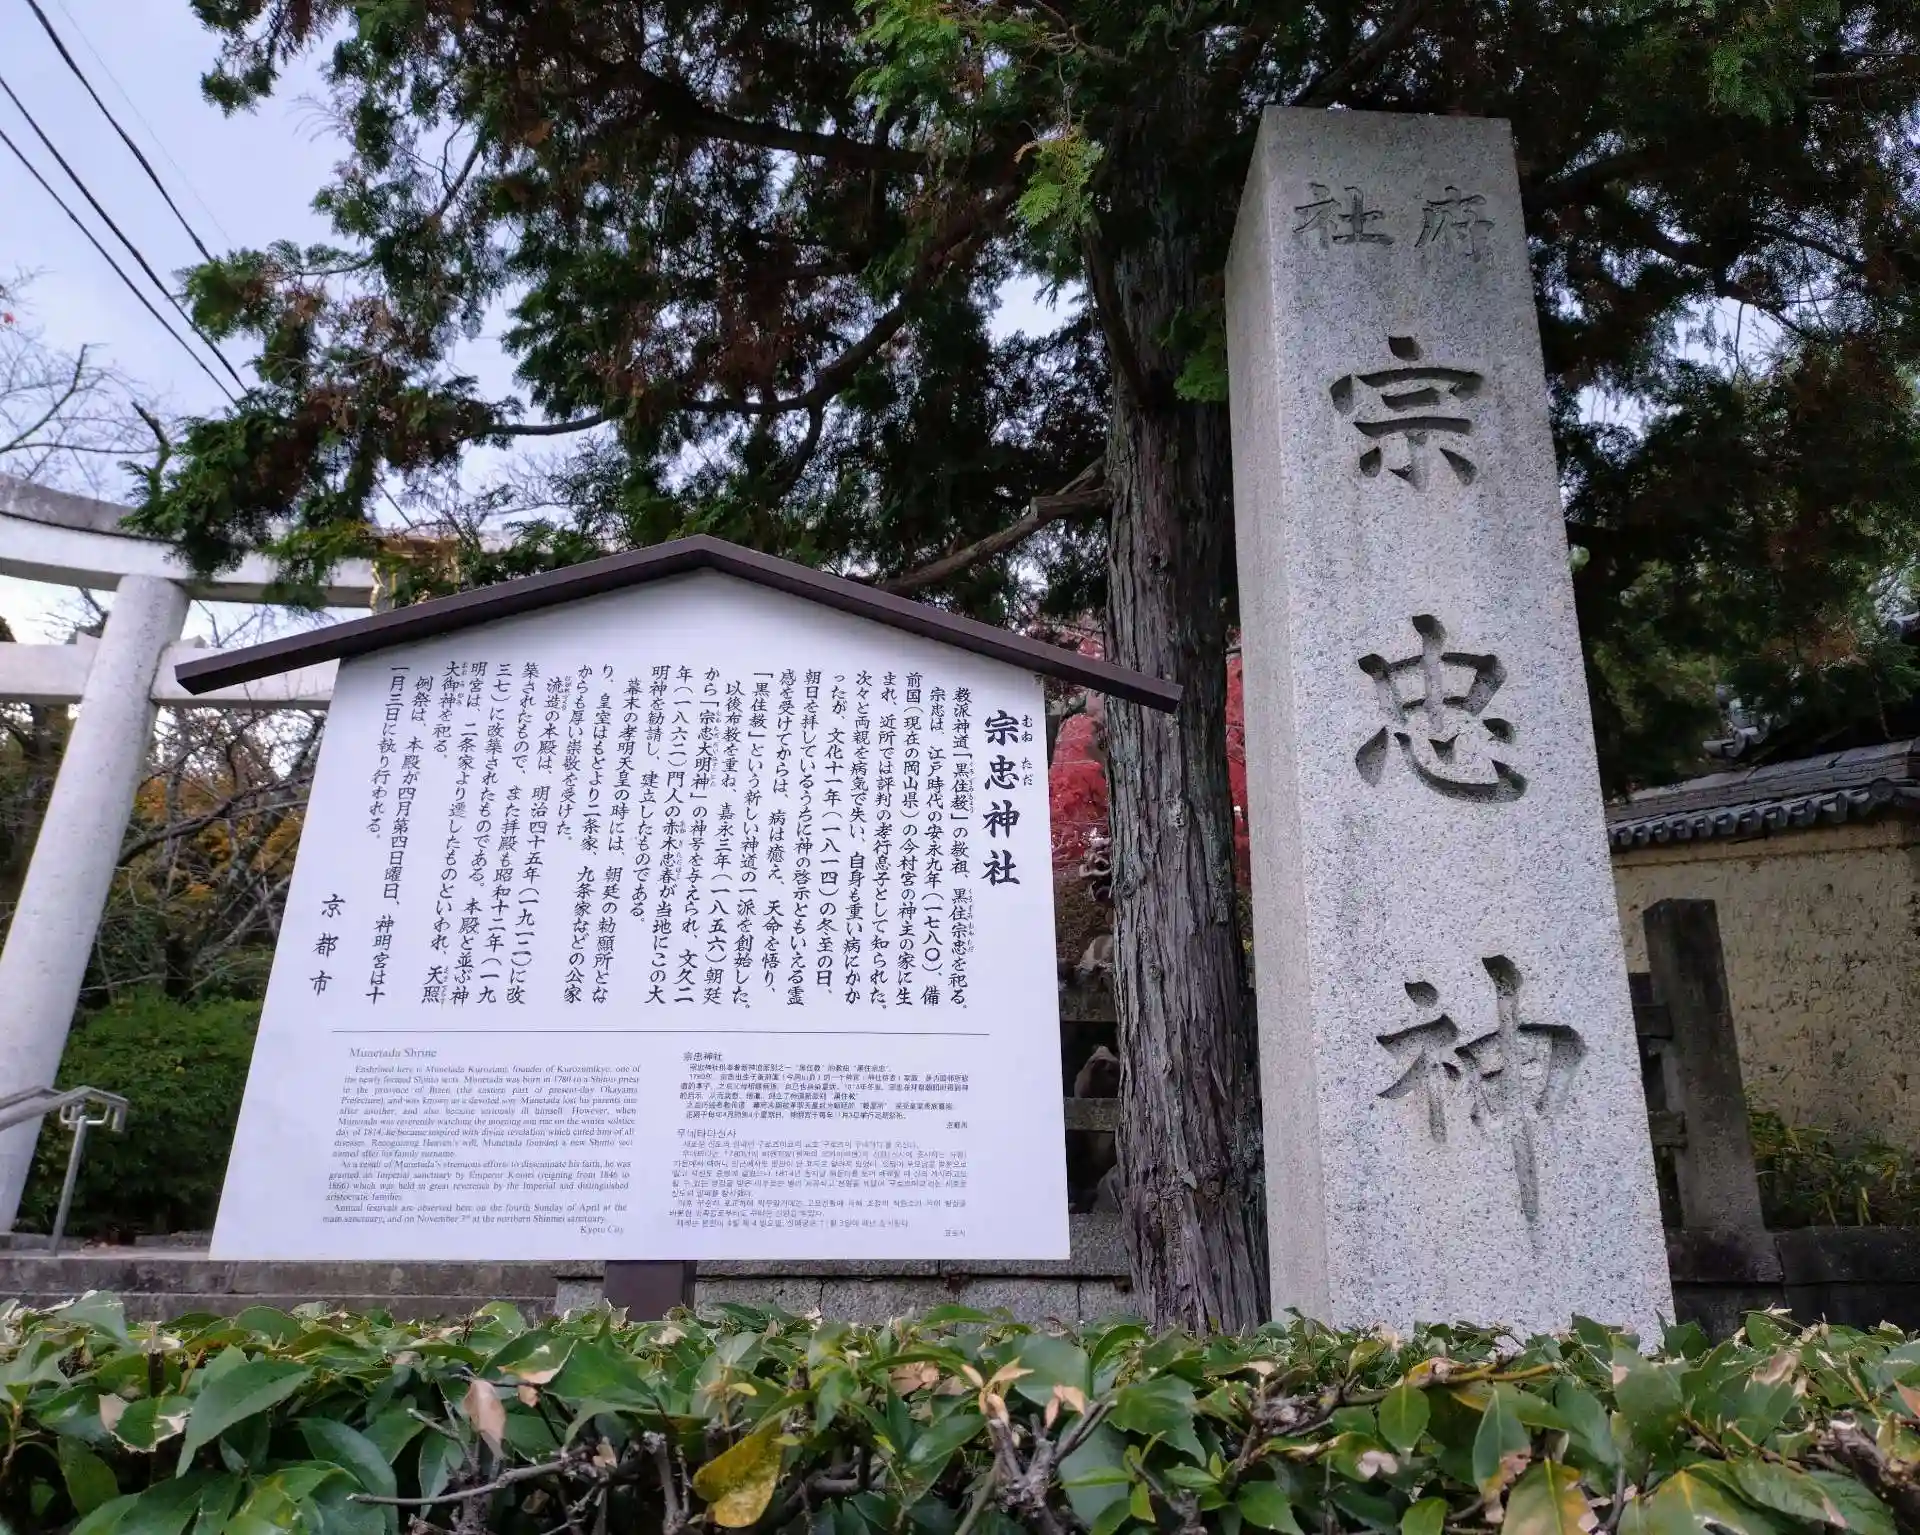 府社
宗忠神
宗忠神社
むねただ
教派神道「黒住教」の教祖、黒住宗忠を祀る。
宗忠は、江戸時代の安永九年（一七八〇）、備
前国（現在の岡山県）の今村宮の神主の家に生
まれ、近所では評判の孝行息子として知られた。
次々と両親を病気で失い、自身も重い病にかか
ったが、文化十一年（一八一四）の冬至の日、
朝日を拝しているうちに神の啓示ともいえる霊
感を受けてからは、病は癒え、天命を悟り、
「黒住教」という新しい神道の一派を創始した。
以後布教を重ね、嘉永三年（一八五六）朝廷
から「宗忠大明神」の神号を与えられ、文久二
年（一八六二）門人の赤木忠春が当地にこの大
明神を勧請し、建立したものである。
幕末の孝明天皇の時には、朝廷の勅願所とな
り、皇室はもとより二条家、九条家などの公家
からも厚い崇敬を受けた。
流造の本殿は、明治四十五年（一九一二）に改
築されたもので、また拝殿も昭和十二年（一九
三七）に改築されたものである。本殿と並ぶ神
明宮は、二条家より遷したものといわれ、天照
大御神を祀る。
例祭は、本殿が四月第四日曜日、神明宮は十
一月三日に執り行われる。
京都市
Munetada Shrine
Enshrined here is Munetada Kurozumi, founder of Kurozumikyo, one of
the newly formed Shinto sects. Munetada was born in 1780 to a Shinto priest
in the province of Bizen (the eastern part of present-day Okayama
Prefecture), and was known as a devoted son. Munetada lost his parents one
after another, and also became seriously ill himself. However, when
Munetada was reverently watching the morning sun rise on the winter solstice
day of 1814, he became inspired with divine revelation which cured him of all
diseases. Recognizing Heaven's will, Munetada founded a new Shinto sect
named after his family surname.
As a result of Munetada's strenuous efforts to disseminate his faith, he was
granted an Imperial sanctuary by Emperor Komei (reigning from 1846 to
1866) which was held in great reverence by the Imperial and distinguished
aristocratic families.
Annual festivals are observed here on the fourth Sunday of April at the
main sanctuary, and on November 3rd at the northern Shinmei sanctuary.
Kyoto City
宗忠神社
무네타다신사
교토시